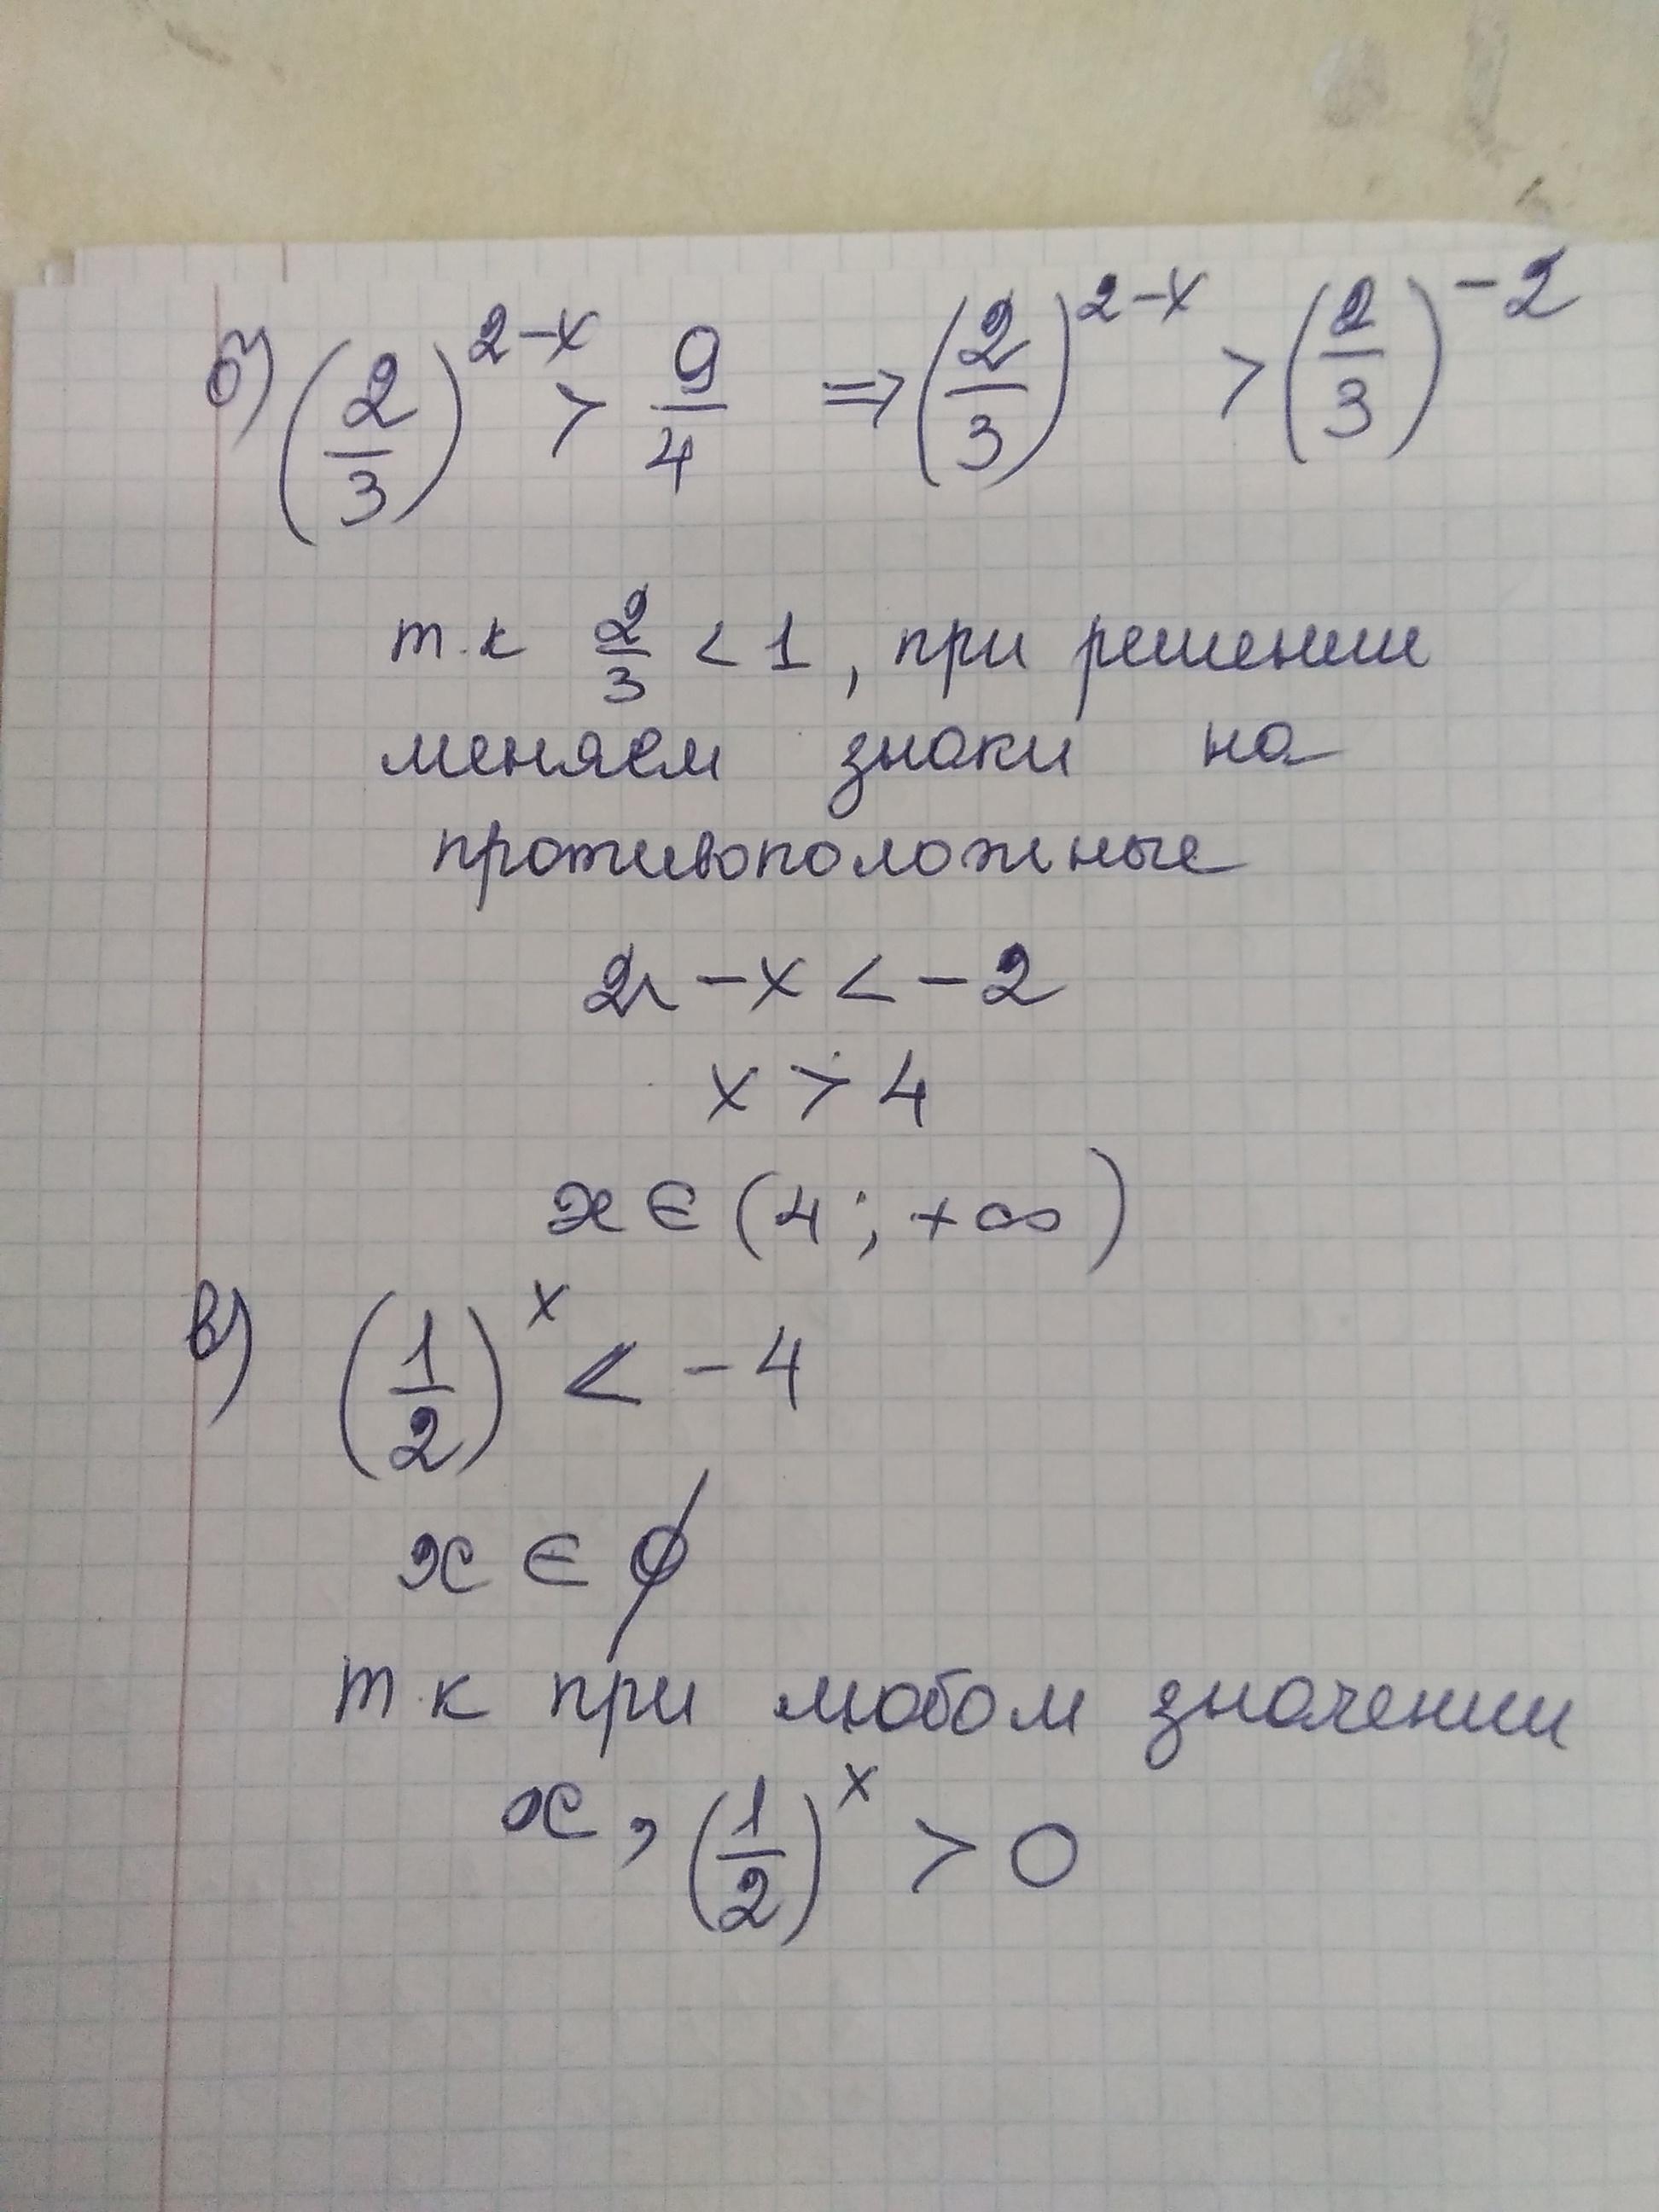 б) (2/3)^(2-x) > 9/4 => (2/3)^(2-x) > (2/3)^(-2)
т.к 2/3 < 1, при решении
меняем знаки на
противоположные
2 - x < -2
x > 4
x ∈ (4; +∞)
в) (1/2)^x < -4
x ∈ ∅
т.к при любом значении
x, (1/2)^x > 0